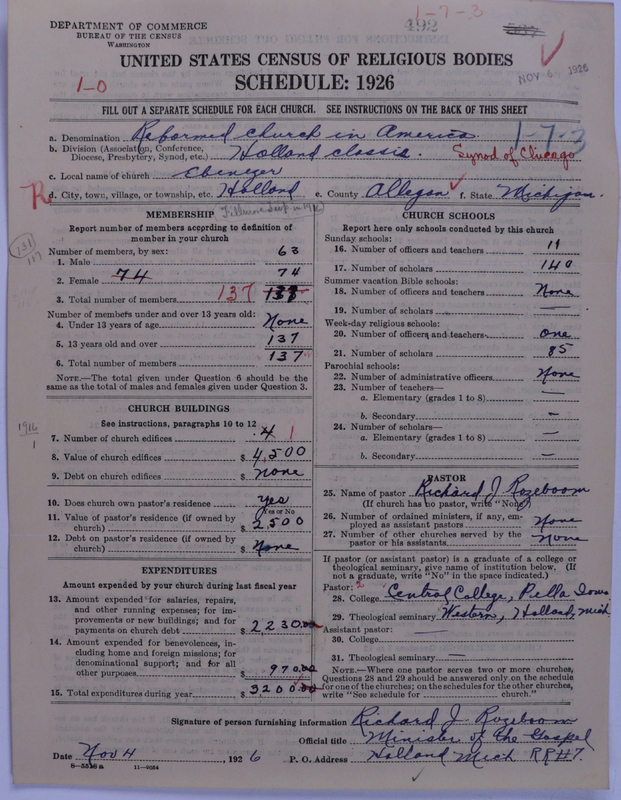 1-7-3
DEPARTMENT OF COMMERCE
BUREAU OF THE CENSUS
WASHINGTON
492
NOV 6 1926
UNITED STATES CENSUS OF RELIGIOUS BODIES
1-0
SCHEDULE: 1926
FILL OUT A SEPARATE SCHEDULE FOR EACH CHURCH. SEE INSTRUCTIONS ON THE BACK OF THIS SHEET
a. Denomination Reformed church in America. 1-7-3
b. Division (Association, Conference, Diocese, Presbytery, Synod, etc.) Holland classis. Synod of Chicago
c. Local name of church Ebenezer
d. City, town, village, or township, etc. Holland e. County Allegan f. State Michigan.
MEMBERSHIP
Report number of members according to definition of member in your church
Number of members, by sex:
1. Male 63
2. Female 74 74
3. Total number of members 137 138
Number of members under and over 13 years old:
4. Under 13 years of age None
5. 13 years old and over 137
6. Total number of members 137
NOTE.—The total given under Question 6 should be the same as the total of males and females given under Question 3.
CHURCH BUILDINGS
See instructions, paragraphs 10 to 12
1916
1
7. Number of church edifices 4 1
8. Value of church edifices $ 4,500
9. Debt on church edifices $ None
10. Does church own pastor's residence? yes
Yes or No
11. Value of pastor's residence (if owned by church) $ 2500
12. Debt on pastor's residence (if owned by church) $ None
EXPENDITURES
Amount expended by your church during last fiscal year
13. Amount expended for salaries, repairs, and other running expenses; for improvements or new buildings; and for payments on church debt $ 2230.00
14. Amount expended for benevolences, including home and foreign missions; for denominational support; and for all other purposes $ 970.00
15. Total expenditures during year $ 3200.00
CHURCH SCHOOLS
Report here only schools conducted by this church
Sunday schools:
16. Number of officers and teachers 11
17. Number of scholars 140
Summer vacation Bible schools:
18. Number of officers and teachers None
19. Number of scholars —
Week-day religious schools:
20. Number of officers and teachers one
21. Number of scholars 85
Parochial schools:
22. Number of administrative officers None
23. Number of teachers—
a. Elementary (grades 1 to 8) —
b. Secondary —
24. Number of scholars—
a. Elementary (grades 1 to 8) —
b. Secondary —
PASTOR
25. Name of pastor Richard J. Rozeboom
(If church has no pastor, write "None")
26. Number of ordained ministers, if any, employed as assistant pastors None
27. Number of other churches served by the pastor or his assistants None
If pastor (or assistant pastor) is a graduate of a college or theological seminary, give name of institution below, (If not a graduate, write "No" in the space indicated.)
Pastor: 2
28. College Central College, Pella Iowa
29. Theological seminary Western, Holland, Mich
Assistant pastor: —
30. College
31. Theological seminary —
NOTE.—Where one pastor serves two or more churches, Questions 28 and 29 should be answered only on the schedule for one of the churches; on the schedules for the other churches, write "See schedule for church."
Signature of person furnishing information Richard J. Rozeboom
Official title Minister of the Gospel
Date Nov 4, 1926 P. O. Address Holland Mich RR#7.
11—9054